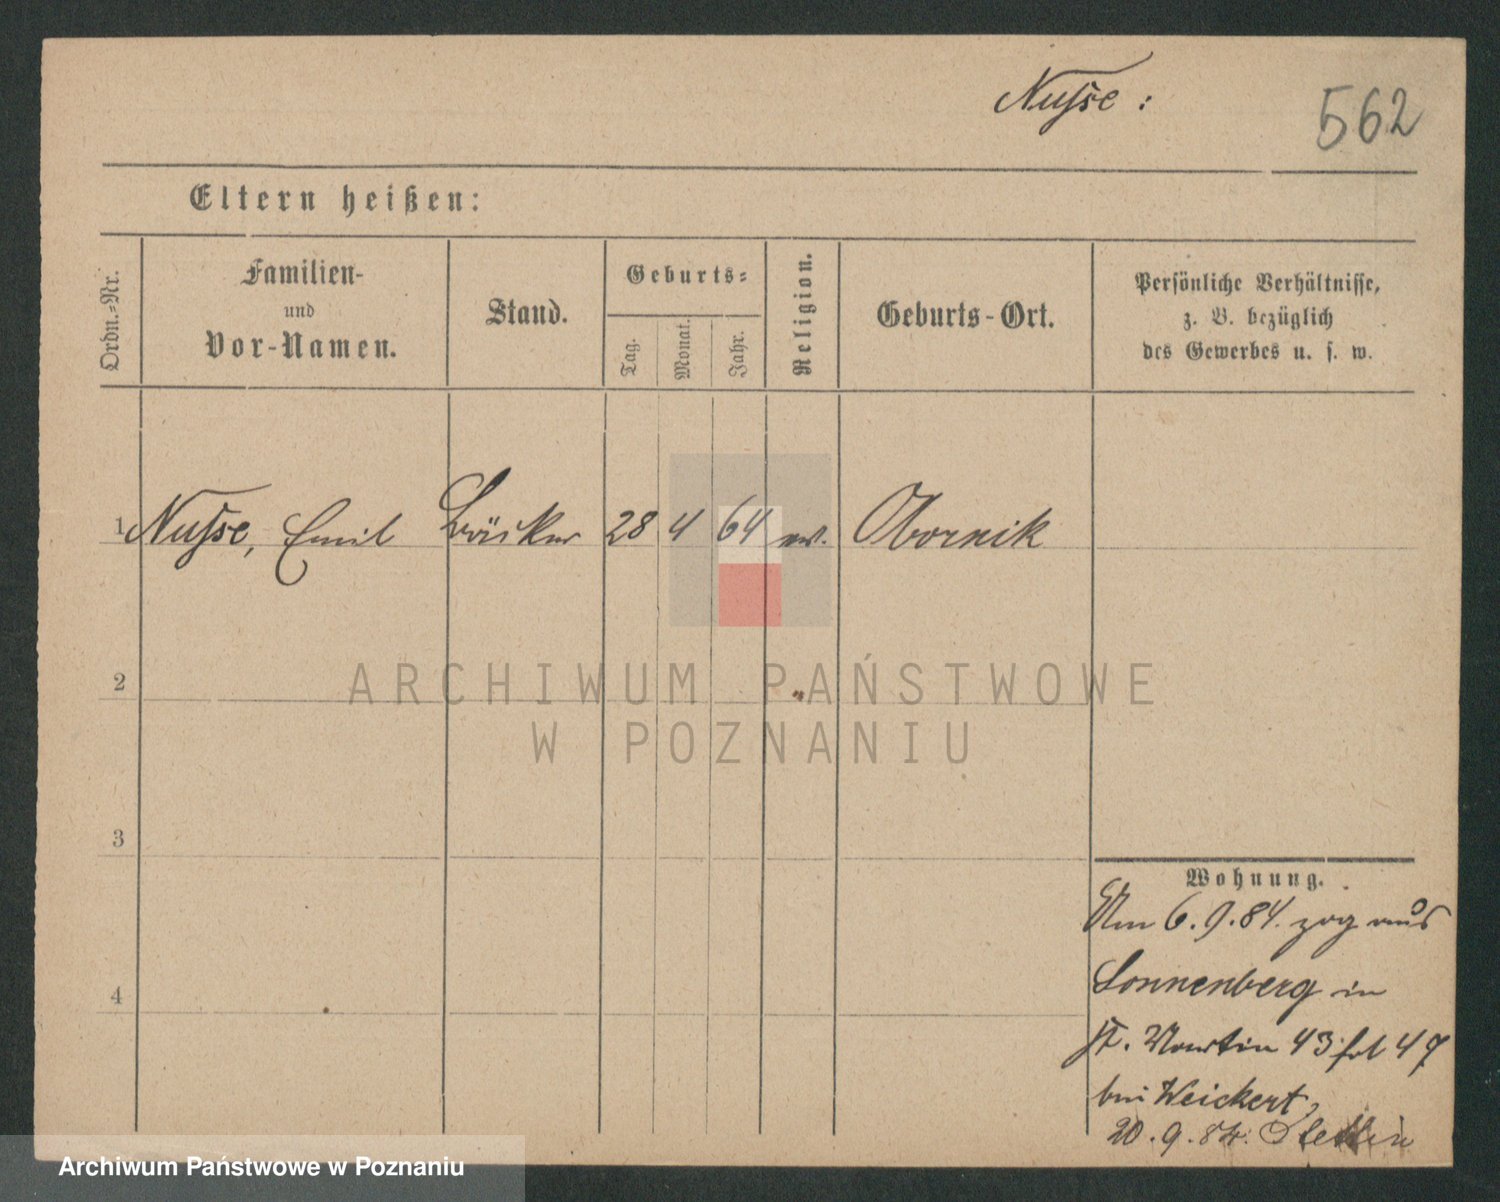 Nusse :
562
Eltern heißen:
Ordn.-Nr.
Familien-
und
Vor-Namen.
Stand.
Geburts-
Tag.
Monat.
Jahr.
Religion.
Geburts-Ort.
Persönliche Verhältnisse,
z. B. bezüglich
des Gewerbes u. s. w.
1 Nusse, Emil 28 4 64 ev. Obornik
2
ARCHIWUM PAŃSTWOWE
W POZNANIU
3
4
Wohnung.
Am 6.9.84. zog aus
Sonnenberg in
St. Martin 43 fol 47
bei Weickert,
20.9.84. Stettin
Archiwum Państwowe w Poznaniu